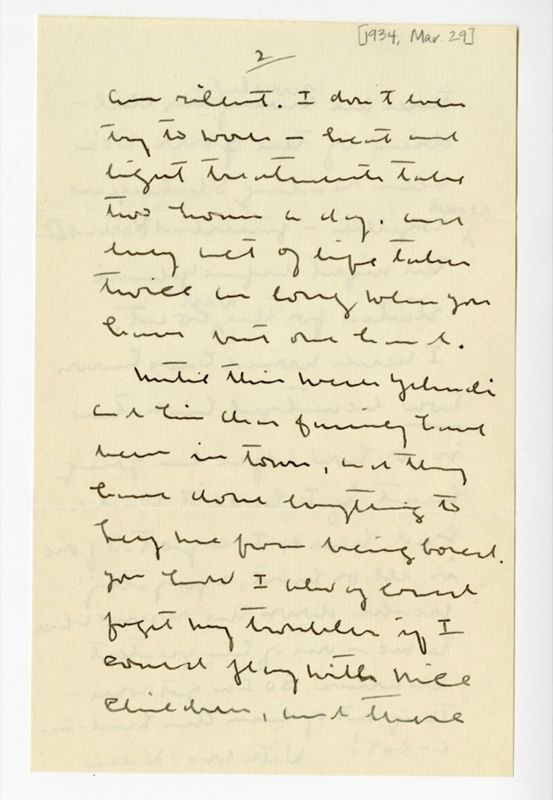 [1934, Mar. 29]
2
am silent. I don't even
try to work — heat and
light treatments take
two hours a day, and
every act of life takes
twice as long when you
have but one hand.
Until this week Yehudi
and his dear family have
been in town, and they
have done everything to
keep me from being bored.
You know I always could
forget my troubles if I
could play with nice
children, and these